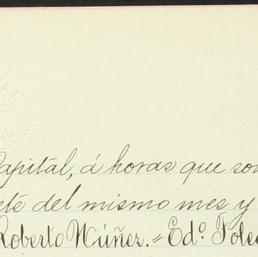 Capital, á horas que son
ete del mismo mes y
Roberto Núñez.=Ed.º Toled